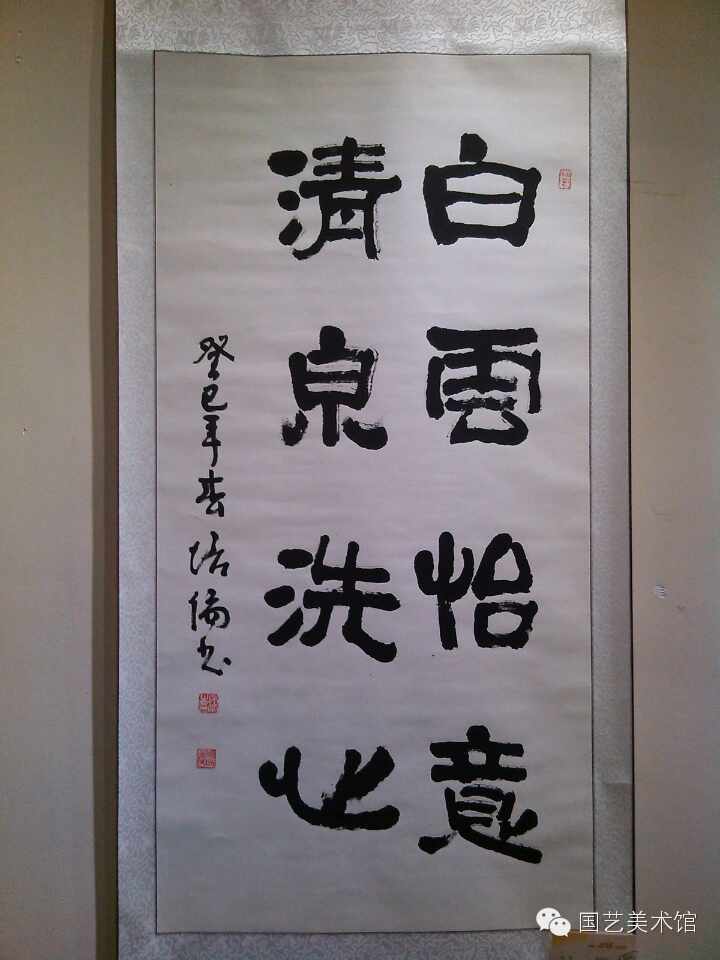 白雲怡意
清泉洗心
癸巳年春培倫书
国艺美术馆